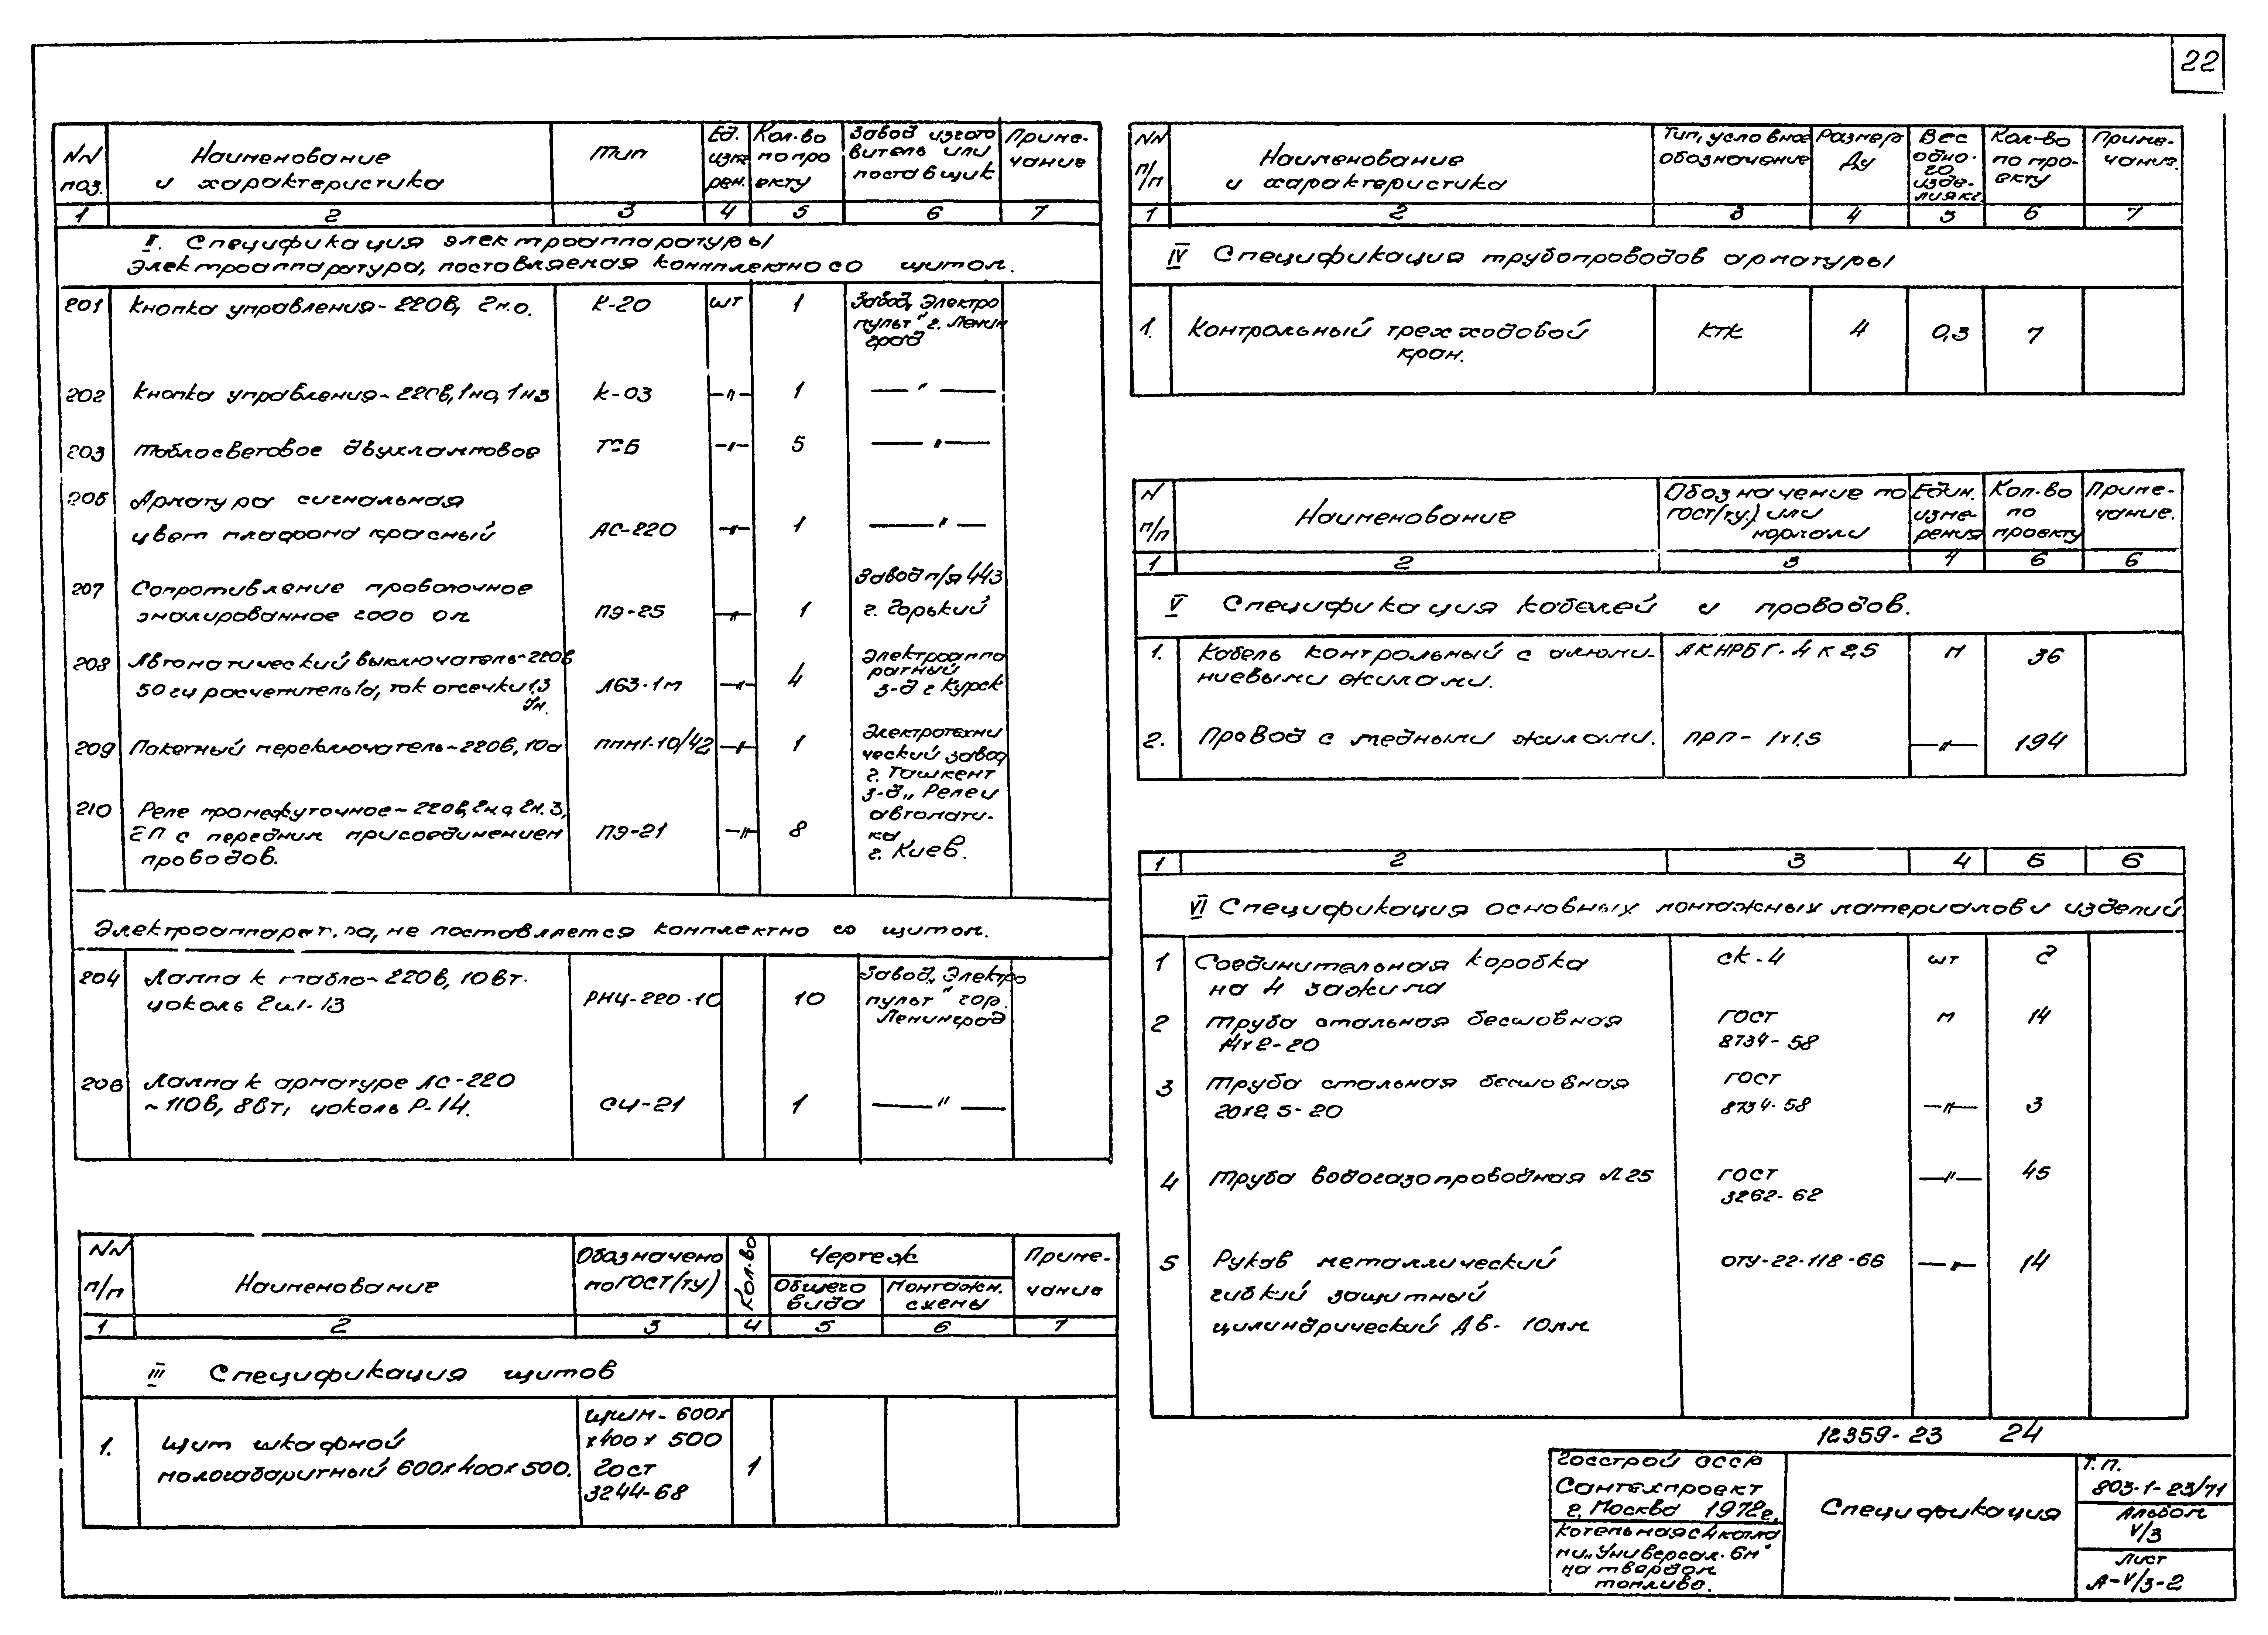 22
NN поз. Наименование и характеристика Тип Ед. изме рен. Кол-во по про екту Завод изгото витель или поставщик Приме- чание
1 2 3 4 5 6 7
II. Спецификация электроаппаратуры
Электроаппаратура, поставляемая комплектно со щитом.
201 Кнопка управления ~ 220В, 2н.о. К-20 шт 1 Завод „Электро
пульт" г. Ленин
град
202 Кнопка управления ~ 220в, 1но, 1нз К-03 —"— 1 —"—
203 Таблосветовое двухламповое ТСБ —"— 5 —"—
205 Арматура сигнальная
цвет плафона красный АС-220 —"— 1 —"—
207 Сопротивление проволочное Завод п/я 443
эмалированное 2000 ом ПЭ-25 —"— 1 г. Горький
208 Автоматический выключатель ~ 220в Электроаппа
50гц расчепитель 1а, ток отсечки 1,3 А63-1м —"— 4 ратный
Jн. з-д г Курск
209 Пакетный переключатель ~ 220в, 10а ППМ1-10/42 —"— 1 Электротехни
ческий завод
г. Ташкент
210 Реле промежуточное ~ 220в, 2но, 2н.з, з-д „Реле и
2П с передним присоединением ПЭ-21 —"— 8 автомати-
проводов. ка
г. Киев.
Электроаппарат.ра, не поставляется комплектно со щитом.
204 Лампа к табло ~ 220в, 10вт. Завод „Электро
цоколь 2ш-13 РНЦ-220-10 10 пульт" гор.
Ленинград
206 Лампа к арматуре АС-220
~ 110в, 8вт, цоколь Р-14. СЦ-21 1 —"—
NN п/п Наименование Обозначено по ГОСТ (ТУ) Кол.во Чертеж Общего вида Монтажн. схемы Приме- чание
1 2 3 4 5 6 7
III Спецификация щитов
1. Щит шкафной ЩШМ-600х
малогабаритный 600х400х500. х400х500 1
ГОСТ
3244-68
NN п/п Наименование и характеристика Тип, условное обозначение Размер Ду Вес одно- го изде- лия кг. Кол-во по про- екту Приме- чание.
1 2 3 4 5 6 7
IV Спецификация трубопроводов арматуры
1. Контрольный трехходовой КТК 4 0,3 7
кран.
N п/п Наименование Обозначение по ГОСТ (ту.) или нормали Един. изме- рения Кол-во по проекту Приме- чание.
1 2 3 4 6 6
V Спецификация кабелей и проводов.
1. Кабель контрольный с алюми- АКНРБГ-4х2,5 м 36
ниевыми жилами.
2. Провод с медными жилами. ПРП- 1х1,5 —"— 194
1 2 3 4 5 6
VI Спецификация основных монтажных материалов и изделий
1 Соединительная коробка СК-4 шт 2
на 4 зажима
2 Труба стальная бесшовная ГОСТ м 14
14х2-20 8734-58
3 Труба стальная бесшовная ГОСТ
20х2,5-20 8734-58 —"— 3
4 Труба водогазопроводная Л 25 ГОСТ —"— 45
3262-62
5 Рукав металлический ОТУ-22-118-66 —"— 14
гибкий защитный
цилиндрический Дв- 10мм
12359-23 24
Госстрой СССР
Сантехпроект
г. Москва 1972г.
Котельная с 4 котла
ми „Универсал-6м"
на твердом
топливе.
Спецификация
Т.П.
803-1-23/71
Альбом
V/3
Лист
А-V/3-2